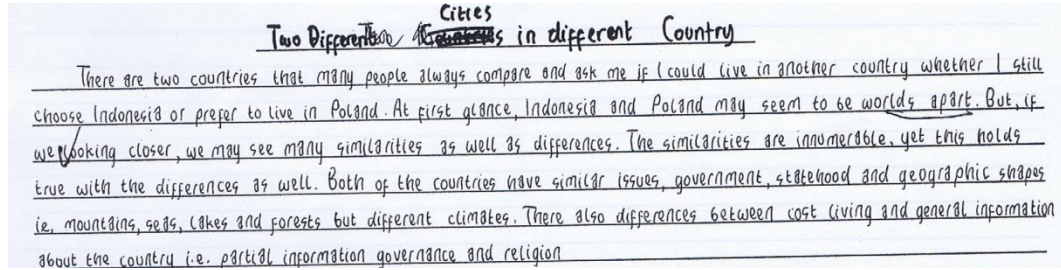 Cities
Two Different in different Country
There are two countries that many people always compare and ask me if I could live in another country whether I still
choose Indonesia or prefer to live in Poland. At first glance, Indonesia and Poland may seem to be worlds apart. But, if
we looking closer, we may see many similarities as well as differences. The similarities are innumerable, yet this holds
true with the differences as well. Both of the countries have similar issues, government, statehood and geographic shapes
ie, mountains, seas, lakes and forests but different climates. There also differences between cost living and general information
about the country i.e. partial information governance and religion